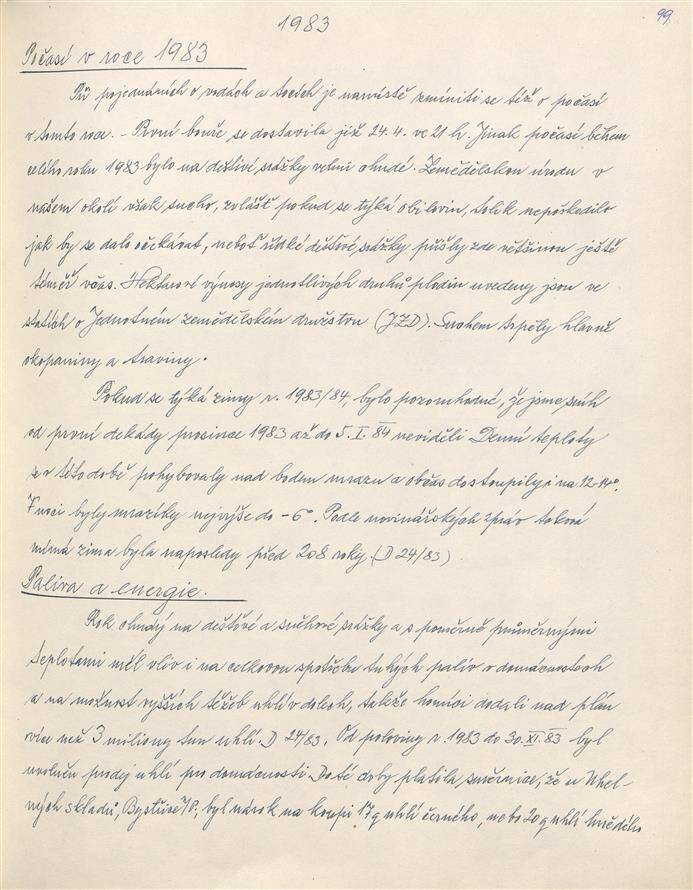 1983
99.
Počasí v roce 1983
Při pojednáních o vodách a tocích je namístě zmíniti se též o počasí
v tomto roce. - První bouře se dostavila již 24.4. ve 21 h. Jinak počasí během
celého roku 1983 bylo na dešťivé srážky velmi chudé. Zemědělskou úrodu v
našem okolí však sucho, zvlášť pokud se týká obilovin, tolik nepoškodilo
jak by se dalo očekávat, neboť řídké dešťové srážky přišly zde většinou ještě
téměř včas. Hektarové výnosy jednotlivých druhů plodin uvedeny jsou ve
statích o Jednotném zemědělském družstvu (JZD). Suchem trpěly hlavně
okopaniny a traviny.
Pokud se týká zimy r. 1983/84, bylo pozoruhodné, že jsme sníh
od první dekády prosince 1983 až do 5. I. 84 neviděli. Denní teploty
se v této době pohybovaly nad bodem mrazu a občas dostoupily i na 12-14°.
V noci byly mrazíky nejvýše do -6°. Podle novinářských zpráv taková
mírná zima byla naposledy před 208 roky. (D 24/83)
Paliva a energie.
Rok chudý na dešťové a sněhové srážky a s poměrně průměrnými
teplotami měl vliv i na celkovou spotřebu tuhých paliv v domácnostech
a na možnost vyšších těžeb uhlí v dolech, takže horníci dodali nad plán
více než 3 miliony tun uhlí. D 24/83. Od poloviny r. 1983 do 30. XI. 83 byl
uvolněn prodej uhlí pro domácnosti. Do té doby platila směrnice, že u Uhel-
ných skladů, Bystřice n/P. byl nárok na koupi 17 q uhlí černého, nebo 20 q uhlí hnědého